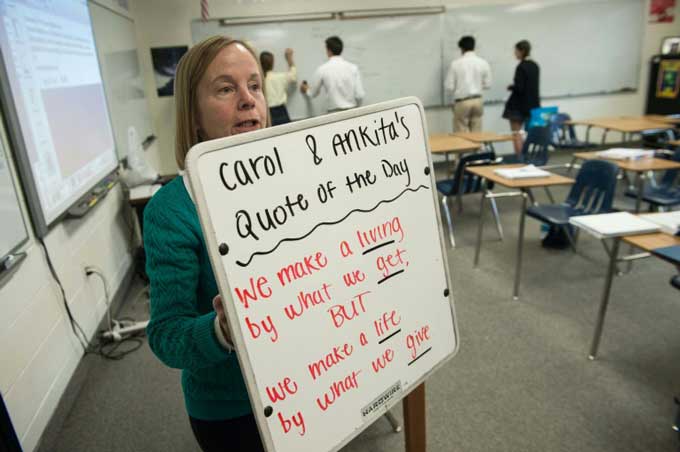 Carol & Ankita's
Quote of the Day
We make a living
by what we get,
BUT
we make a life
by what we give